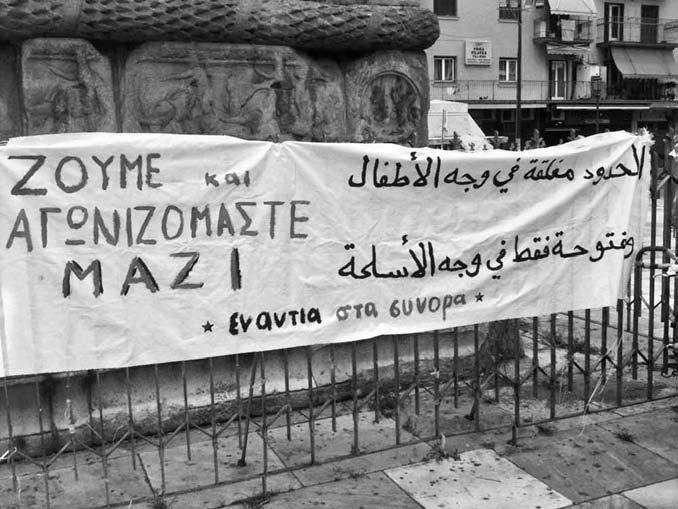 ΖΟΥΜΕ και
ΑΓΩΝΙΖΟΜΑΣΤΕ
ΜΑΖΙ
الحدود مغلقة في وجه الأطفال
ومفتوحة فقط في وجه الأسلحة
★ εναντια στα συνορα ★